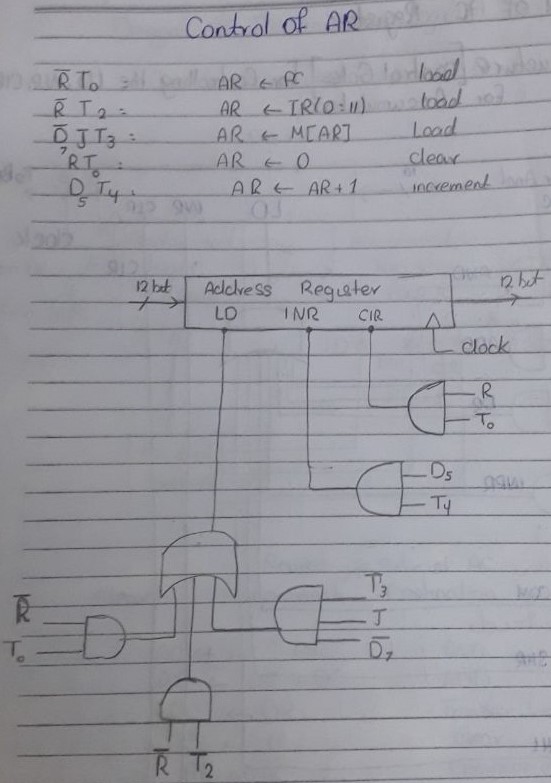 Control of AR
R̅ T₀ AR ← PC load
R̅ T₂ : AR ← IR(0-11) load
D̅₇ J T₃ : AR ← M[AR] Load
RT₀ : AR ← 0 clear
D₅ T₄ : AR ← AR+1 increment
12 bit Address Register 12 bit
LD INR CIR
clock
R
T₀
D₅
T₄
T₃
J
D̅₇
R̅
T₀
R̅ T₂